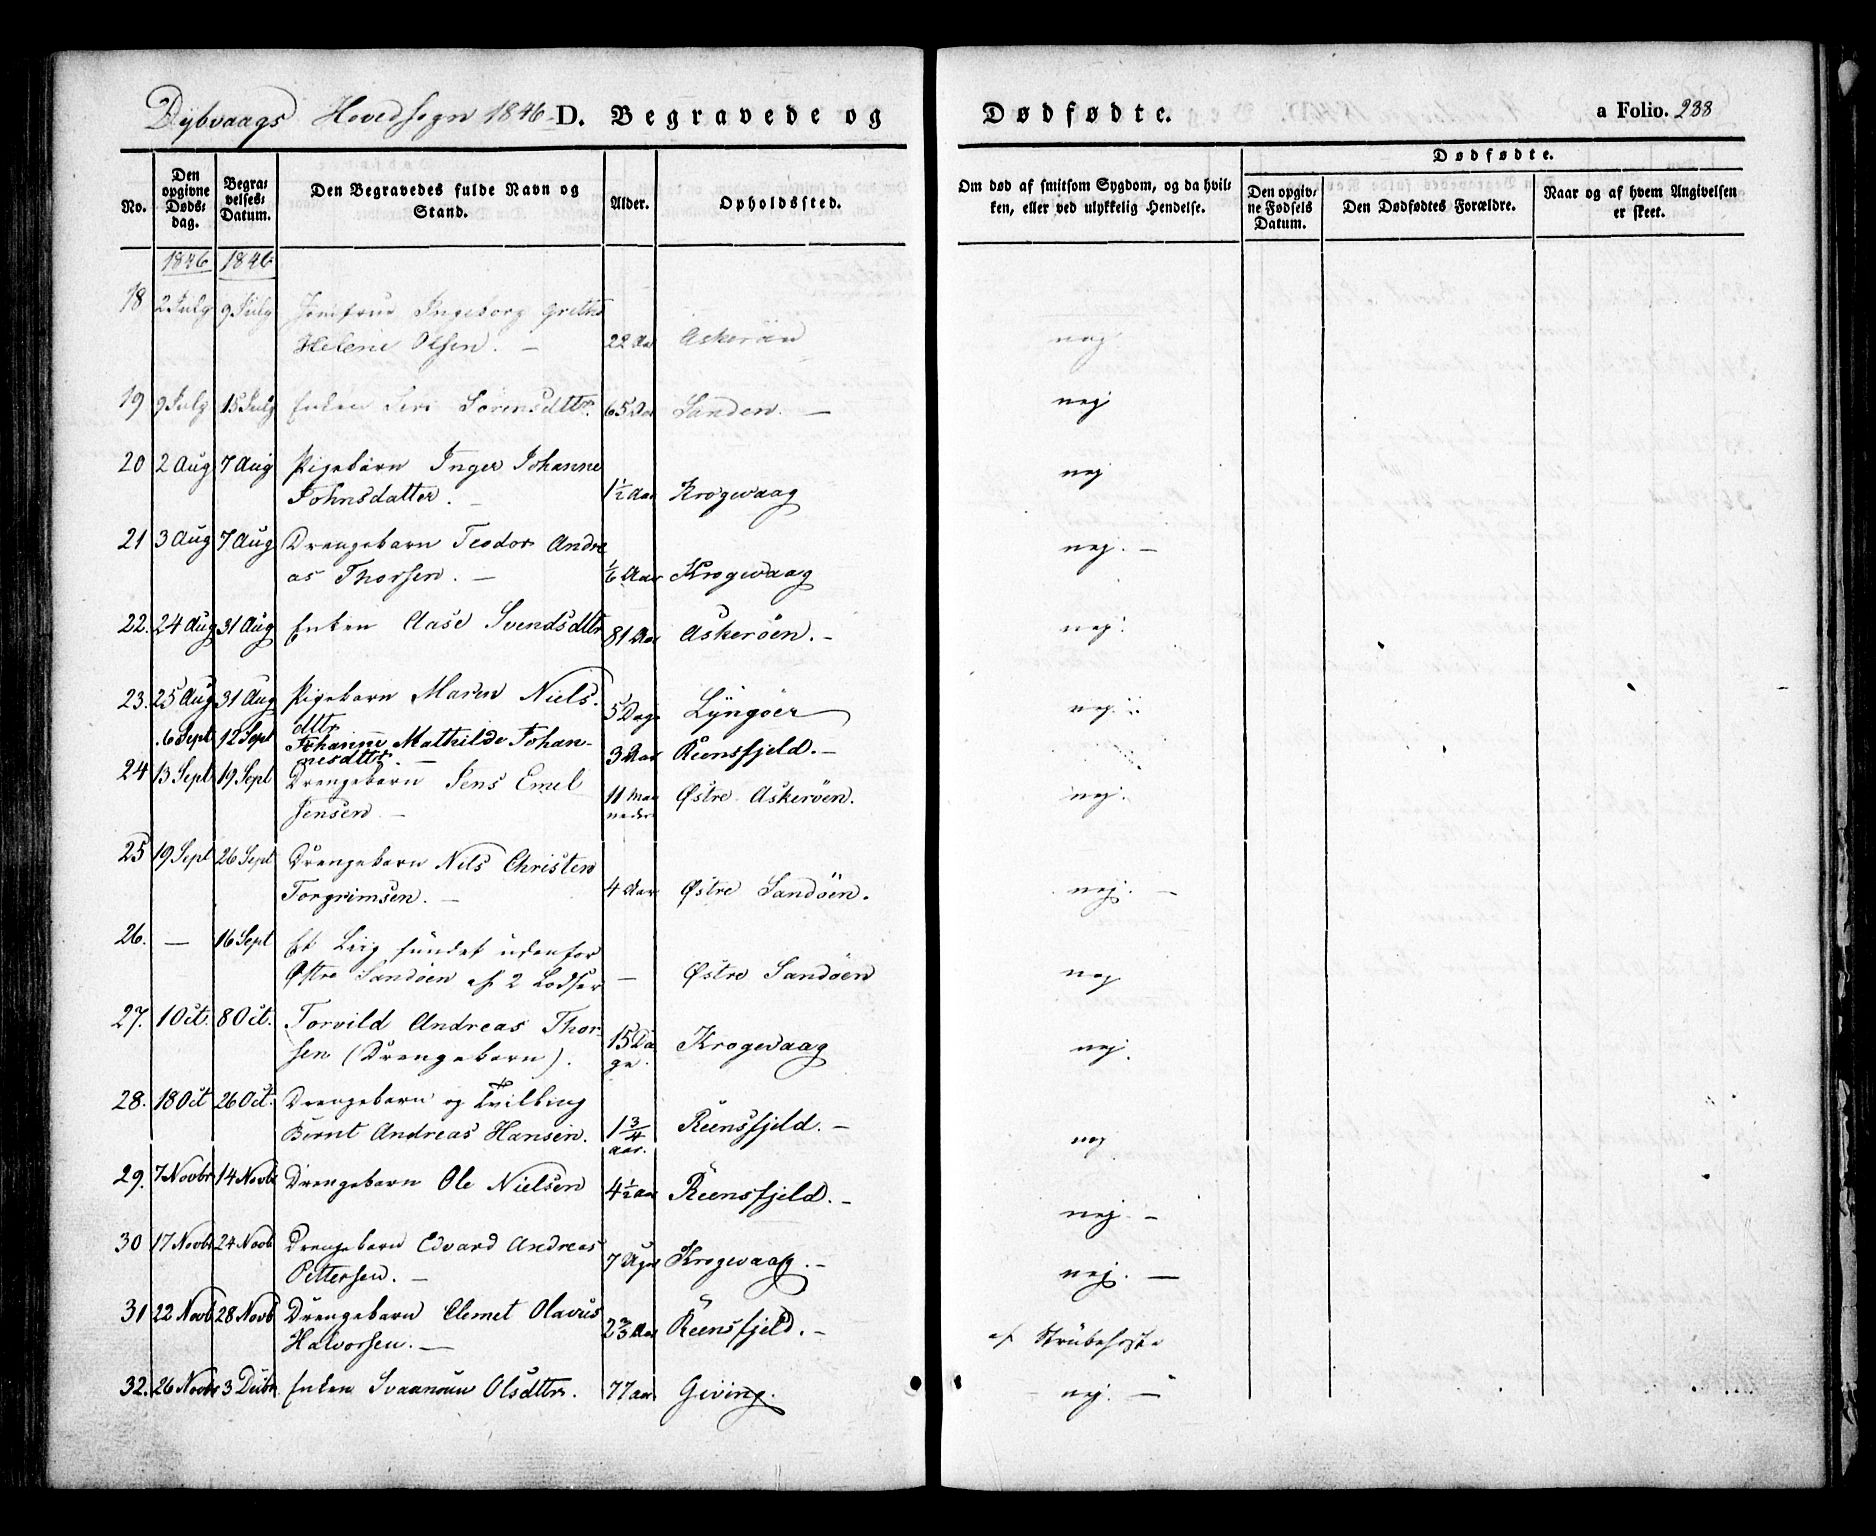 Dybvaags Hovedsogn 1846 D. Begravede og Dødfødte. a Folio. 238
No.
Den opgivne Døds-dag.
Begra-velses-Datum.
Den Begravedes fulde Navn og Stand.
Alder.
Opholdssted.
Om død af smitsom Sygdom, og da hvil-
ken, eller ved ulykkelig Hendelse.
Dødfødte.
Den opgiv-ne Fødsels Datum.
Den Dødfødtes Forældre.
Naar og af hvem Angivelsen er skeet.
1846 1846
18 2 July 9 July Jomfrue Ingeborg Grethe
Helene Olsen. — 22 Aar Askerøen nej
19 9 July 15 July Enken Siri Sørensdttr. 65 Aar Sanden. — nej
20 2 Aug 7 Aug Pigebarn Inger Johanne
Johnsdatter. — 1½ Aar Krogevaag nej
21 3 Aug 7 Aug Drengebarn Teodor Andre
as Thorsen. — 1/6 Aar Krogevaag nej. —
22. 24 Aug 31 Aug Enken Aase Svendsdttr 81 Aar Askerøen. — nej.
23. 25 Aug 31 Aug Pigebarn Maren Niels-
dttr 5 Dage Lyngøer nej.
6 Sept 12 Sept Johanne Mathilde Johan-
nesdttr. — 3 Aar Reensfjeld. —
24 13 Sept 19 Sept Drengebarn Jens Emel
Jensen — 11 Maa
neder Østre Askerøen. nej.
25 19 Sept 26 Sept Drengebarn Nels Christen
Torgrimsen. — 4 Aar Østre Sandøen. nej. —
26. — 16 Sept Et Liig fundet udenfor
Østre Sandøen af 2 Lodser — Østre Sandøen nej
27. 1 Oct. 8 Oct. Torvild Andreas Thor-
sen (Drengebarn). 15 Da
ge. Krogevaag nej.
28. 18 Oct 26 Oct. Drengebarn og Tvilling
Bernt Andreas Hansen. 1¾
aar. Reensfjeld. — nej
29. 7 Novbr 14 Novb Drengebarn Ole Nielsen 4½ aar Reensfjeld. — nej. —
30 17 Novbr 24 Novb Drengebarn Edvard Andreas
Pettersen. — 7 Uger Krogevaag. — nej. —
31 22 Novb 28 Novb Drengebarn Clemet Olavus
Halvorsen. — 2⅔ Aar Reensfjeld. — af Strubehoste
32. 26 Novbr 3 Decbr. Enken Svaanoun Olsdttr. 77 aar Geving. — nej. —